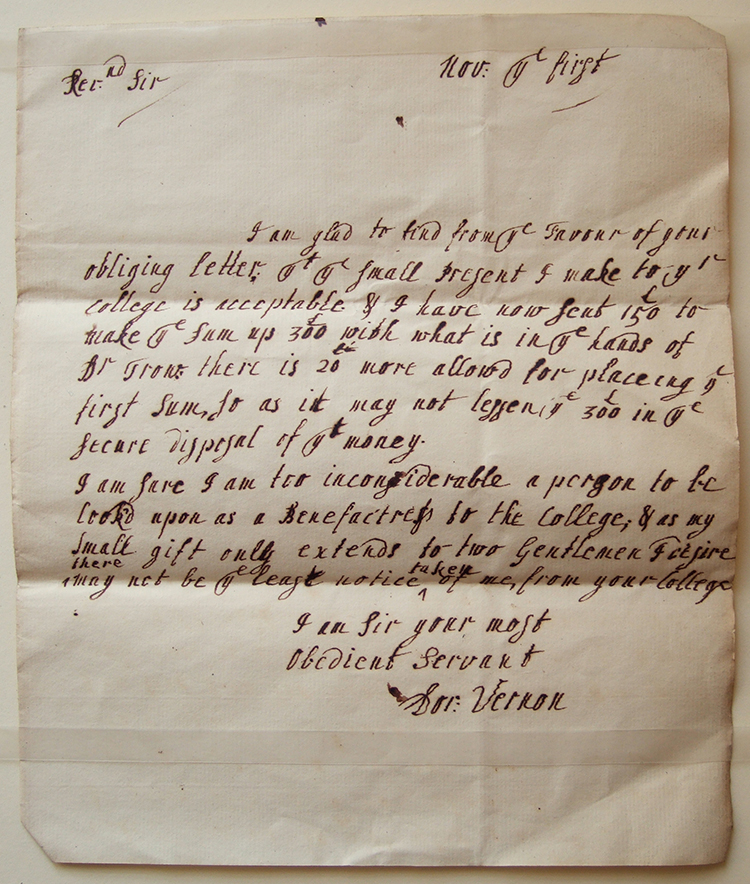 Rev:nd Sir
Nov: ye first
I am glad to find from ye Favour of your
obliging letter, yt ye small Present I make to yr
College is acceptable & I have now sent 150£ to
make ye Sum up 300£ with what is in ye hands of
Dr Tron: there is 20£ more allowd for placeing ye
first Sum, so as it may not lessen ye 300£ in ye
secure disposal of yt money.
I am sure I am too inconsiderable a person to be
lookd upon as a Benefactress to the College, & as my
small gift only extends to two Gentlemen I desire
there
may not be ye least notice taken of me, from your College
I am Sir your most
Obedient Servant
Dor: Vernon